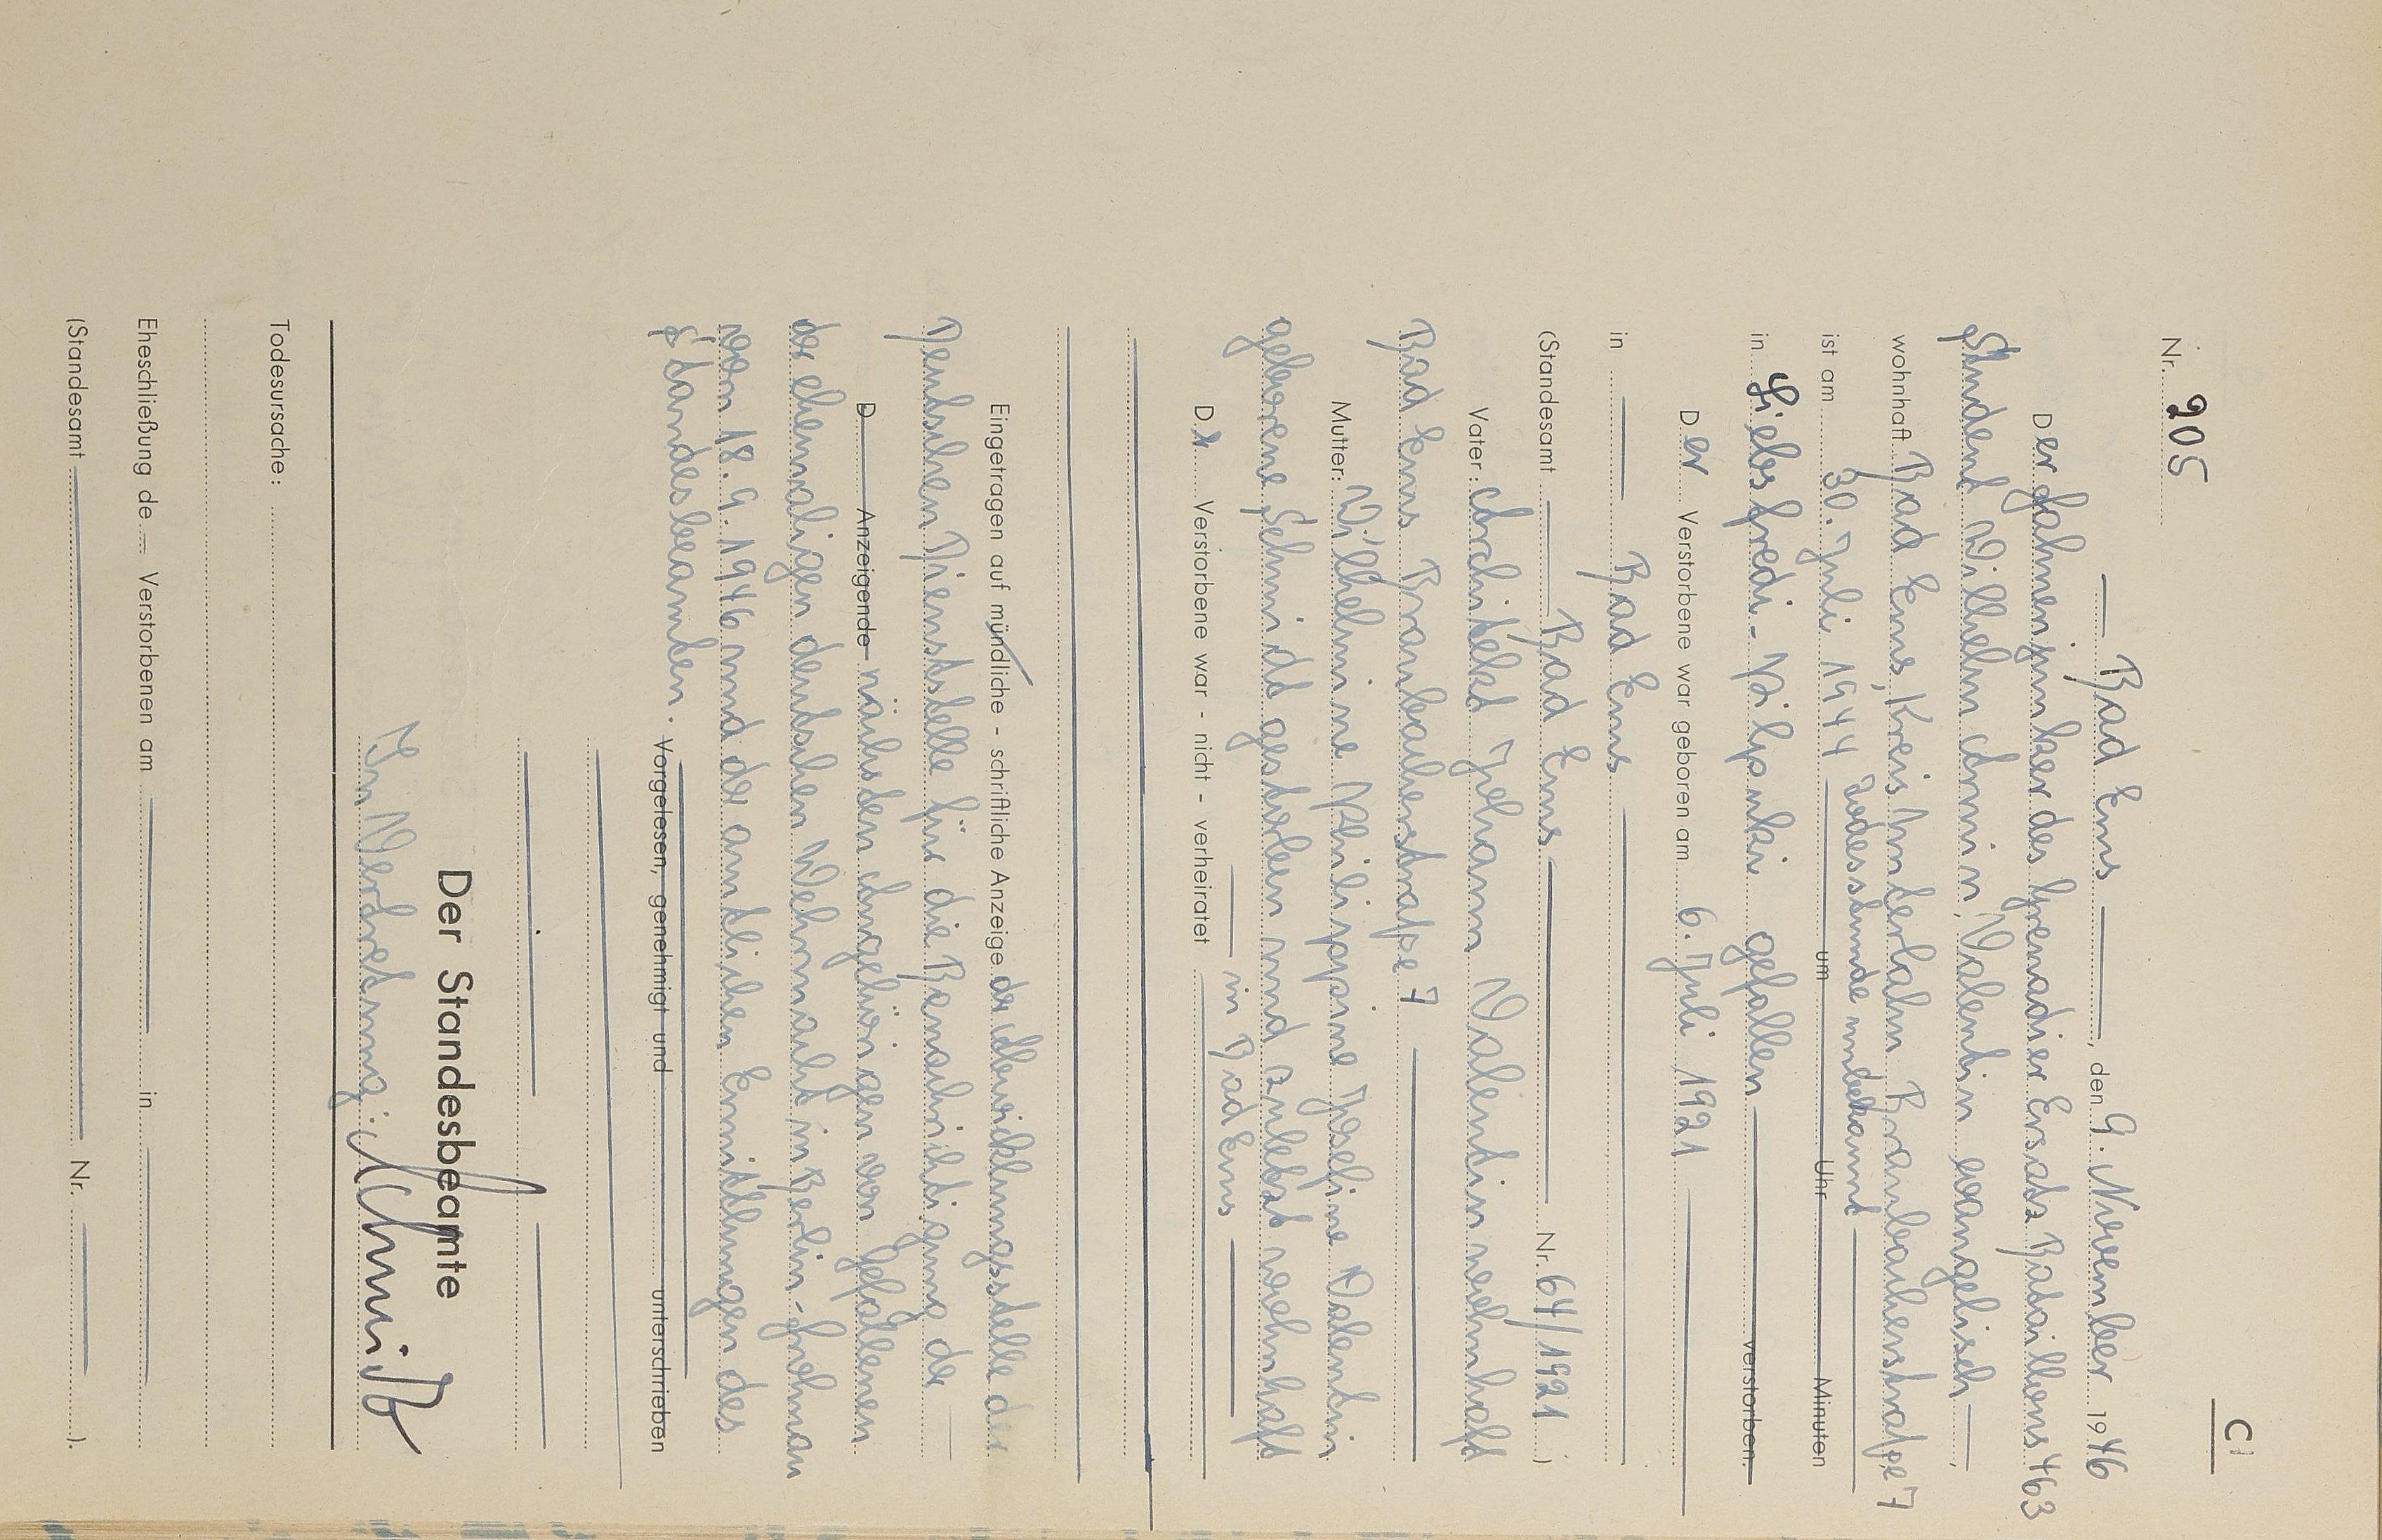 C1
Nr. 205
Bad Ems, den 9. November 1946
Der Fahnenjunker des Grenadier Ersatz Bataillons 463
Student Wilhelm Armin Valentin evangelisch
wohnhaft Bad Ems, Kreis Unterlahn Braubacherstraße 7
ist am 30. Juli 1944 Todesstunde unbekannt um Uhr Minuten
in Siebsfredi-Vilpuki gefallen verstorben.
Der Verstorbene war geboren am 6. Juli 1921
in Bad Ems
(Standesamt Bad Ems Nr. 64/1921)
Vater: Architekt Johann Valentin wohnhaft
Bad Ems Braubacherstraße 7
Mutter: Wilhelmine Philippine Josefine Valentin
geborene Schmidt gestorben und zuletzt wohnhaft
in Bad Ems
D.r Verstorbene war - nicht - verheiratet
Eingetragen auf mündliche - schriftliche Anzeige der Abwicklungsstelle der
Deutschen Dienststelle für die Benachrichtigung der
D Anzeigende nächsten Angehörigen von Gefallenen
der ehemaligen deutschen Wehrmacht in Berlin-Frohnau
vom 18.9.1946 und der amtlichen Ermittlungen des
Standesbeamten. Vorgelesen, genehmigt und unterschrieben
Der Standesbeamte
In Vertretung: Schmidt
Todesursache:
Eheschließung de Verstorbenen am in
(Standesamt Nr. ).